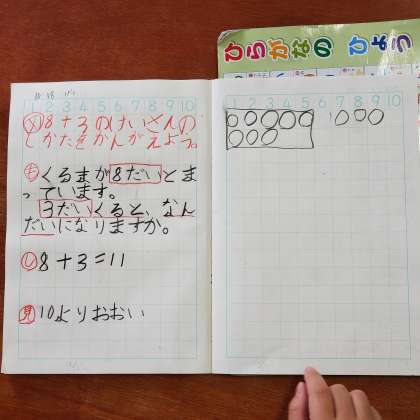 ひらがなのひょう
1 2 3 4 5 6 7 8 9 10
め 8+3のけいさんの
しかたをかんがえよう。
も くるまが8だいとま
っています。
3だいくると、なん
だいになりますか。
し 8+3=11
見 10よりおおい
1 2 3 4 5 6 7 8 9 10